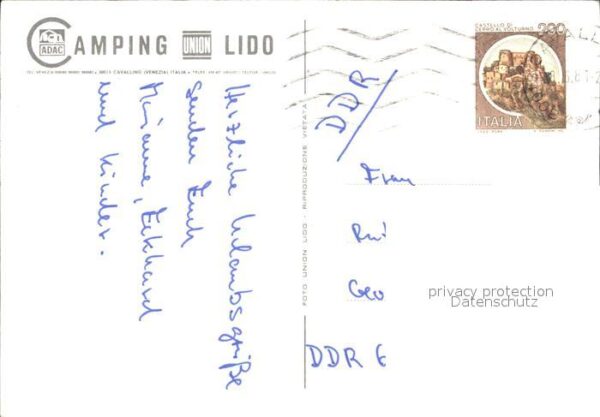 CAMPING UNION LIDO
ADAC
CAVALLINO (VENEZIA) ITALIA
Herzliche Urlaubsgrüße
senden Euch
Marianne, Eckhard
und Kinder.
FOTO UNION LIDO - RIPRODUZIONE VIETATA
CASTELLO DI
CERRO AL VOLTURNO
ITALIA
DDR
Frau
Geo
DDR 6
privacy protection
Datenschutz